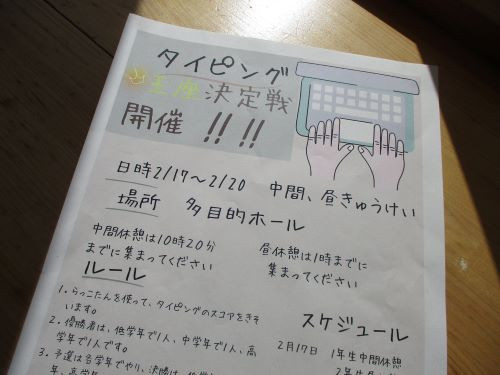 タイピング
王座決定戦
開催!!!!
日時2/17〜2/20 中間、昼きゅうけい
場所 多目的ホール
中間休憩は10時20分
までに集まってください
昼休憩は1時までに
集まってください
ルール
1.らっこたんを使って、タイピングのスコアをきそ
います。
2.優勝者は、低学年で1人、中学年で1人、高
学年で1人です。
3.予選は各学年でやり、決勝は、低学
スケジュール
2月17日 1年生中間休憩
2年生昼